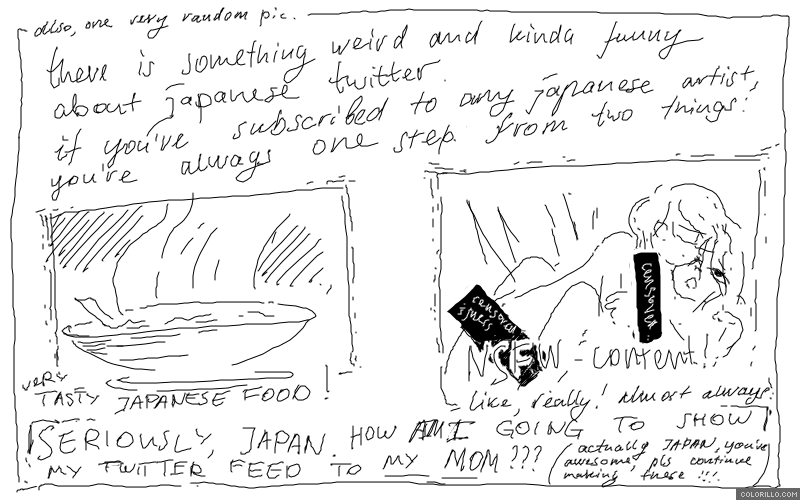 also, one very random pic.
there is something weird and kinda funny
about japanese twitter.
if you've subscribed to any japanese artist,
you're always one step from two things:
censored
censored
NSFW - content!
very
TASTY JAPANESE FOOD!
like, really! Almost always!
SERIOUSLY, JAPAN, HOW AM I GOING TO SHOW
MY TWITTER FEED TO MY MOM???
(actually JAPAN, you're
awesome, pls continue
making these !!!)
COLORILLO.COM